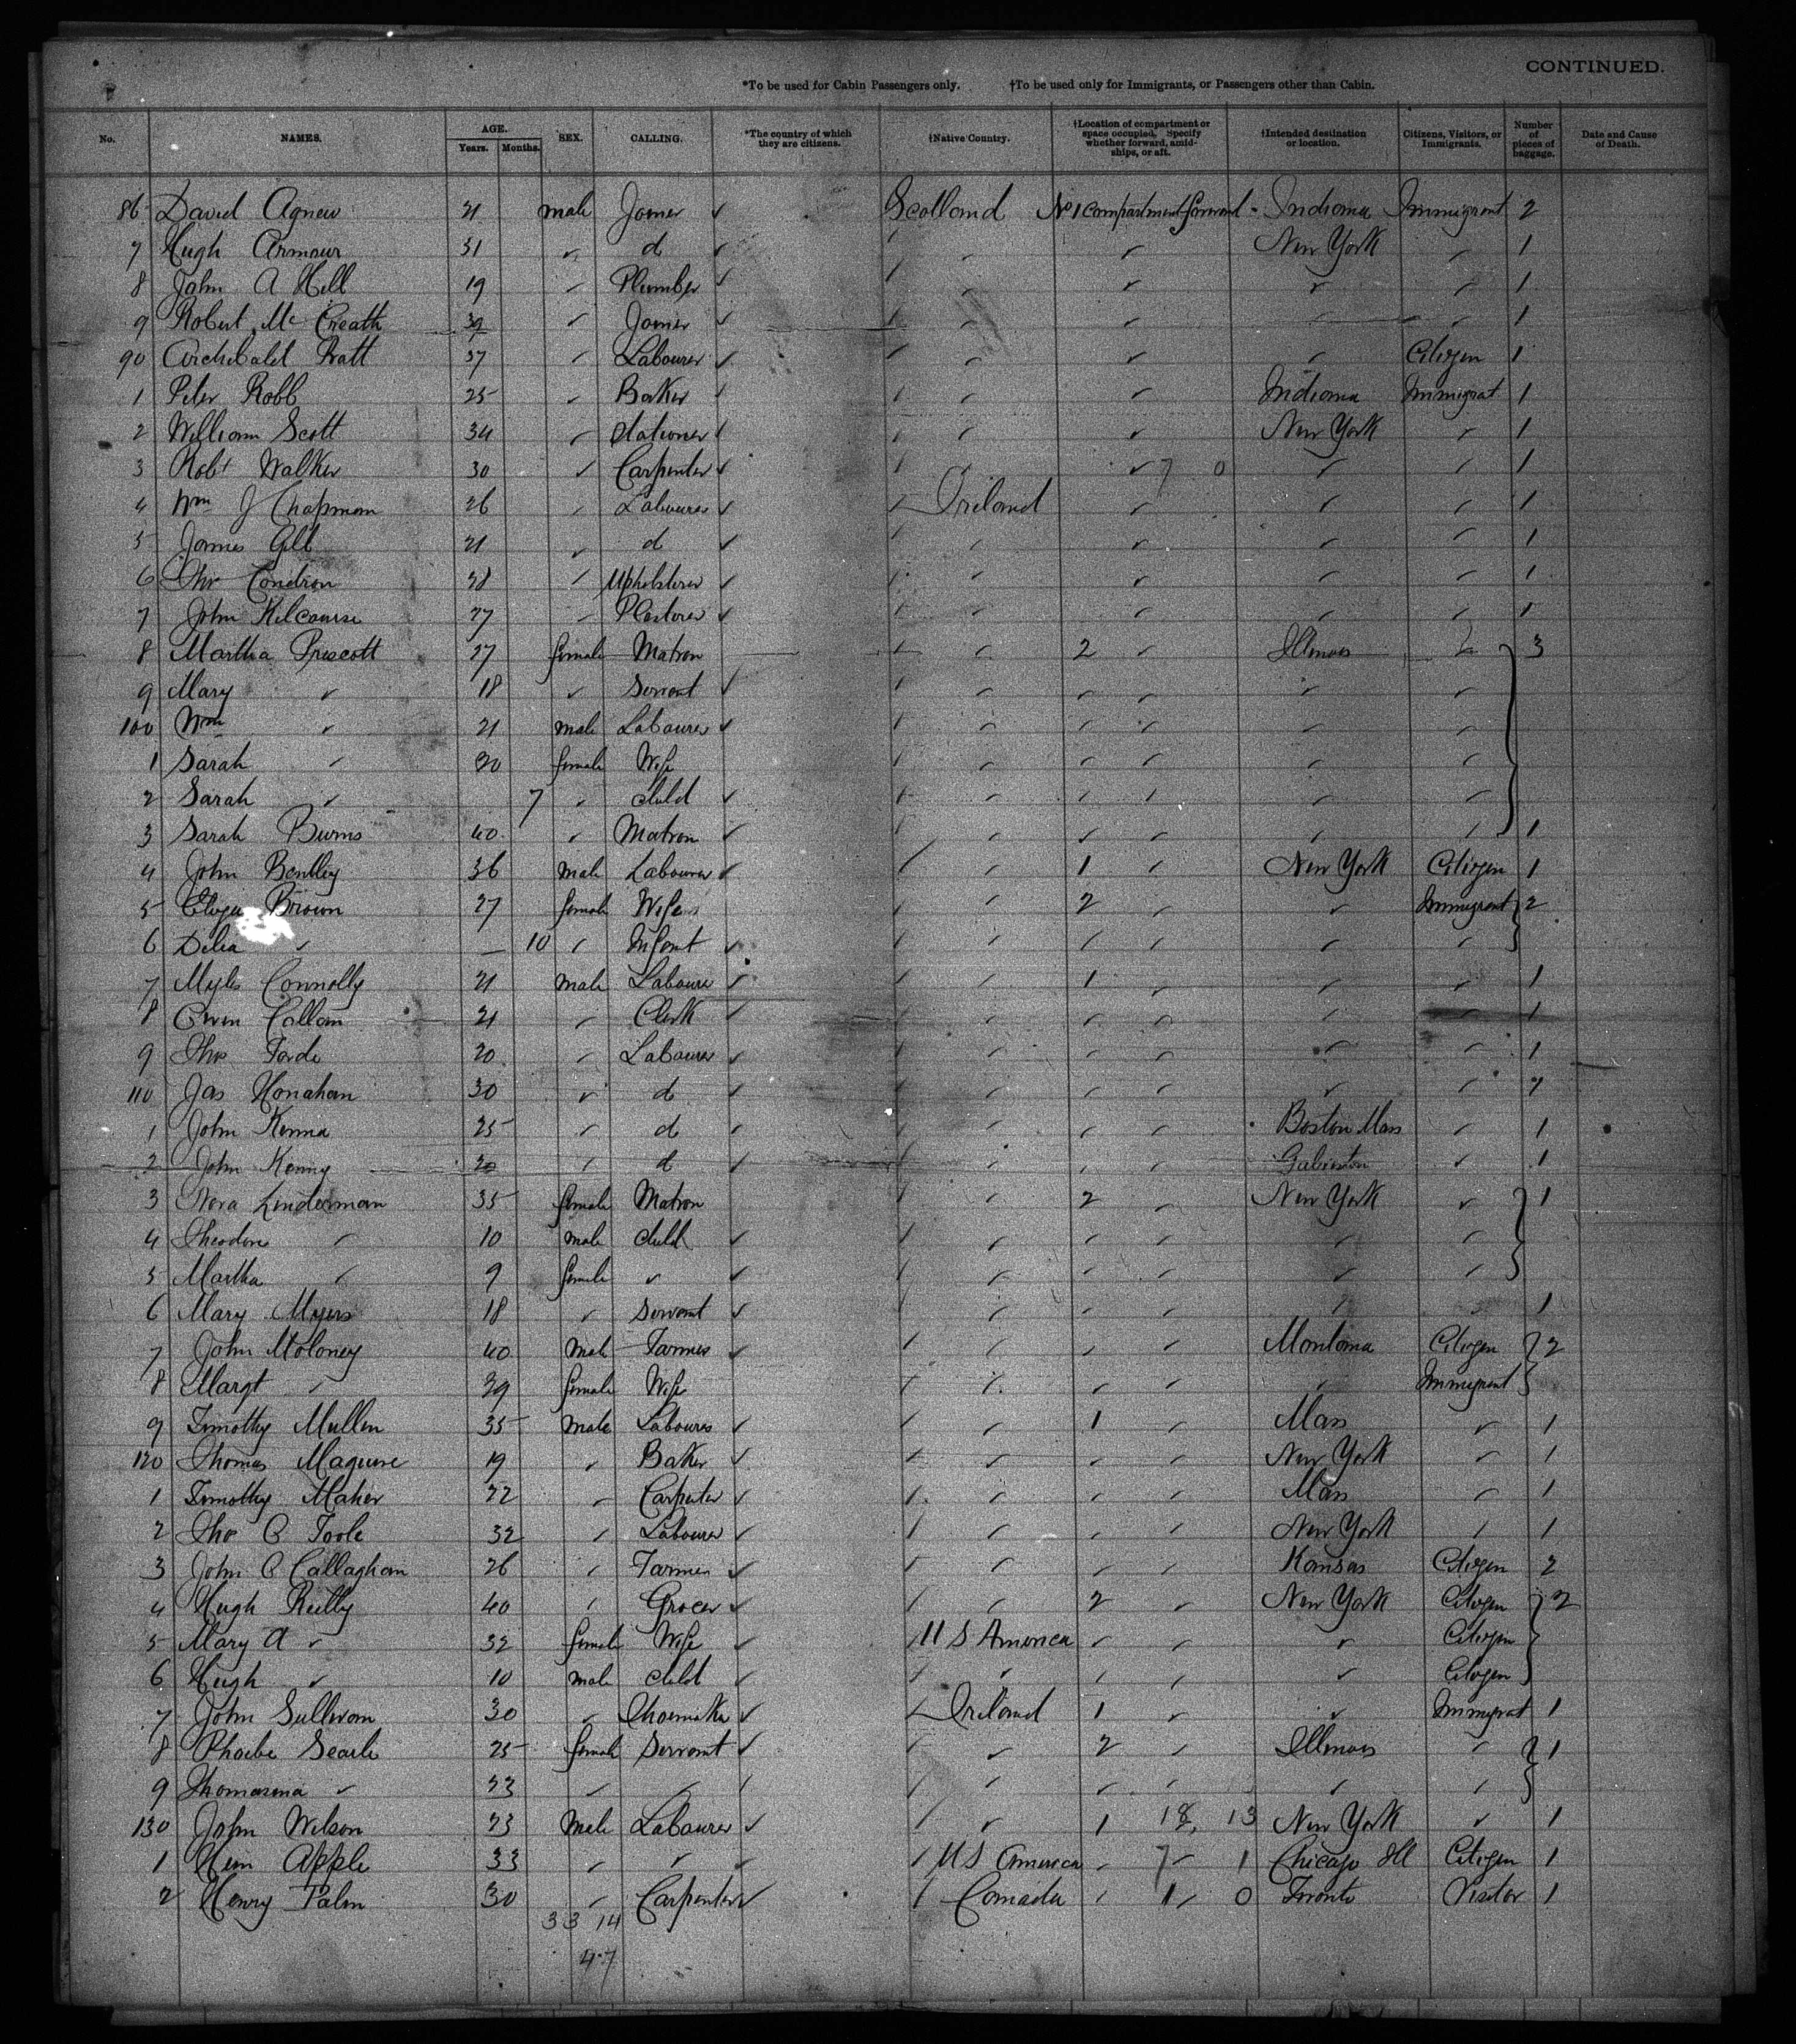 CONTINUED.
*To be used for Cabin Passengers only. †To be used only for Immigrants, or Passengers other than Cabin.
No. NAMES. AGE. Years. Months. SEX. CALLING. *The country of which they are citizens. †Native Country. †Location of compartment or space occupied. Specify whether forward, amidships, or aft. †Intended destination or location. Citizens, Visitors, or Immigrants. Number of pieces of baggage. Date and Cause of Death.
86 David Agnew 21 male Joiner Scotland No 1 compartment forward Indiana Immigrant 2
7 Hugh Armour 31 d New York 1
8 John A Hill 19 Plumber 1
9 Robert Mc Creath 39 Joiner 1
90 Archibald Pratt 37 Labourer Citizen 1
1 Peter Robb 25 Baker Indiana Immigrat 1
2 William Scott 34 Stationer New York 1
3 Robt Walker 30 Carpenter 7 0 1
4 Wm J Chapman 26 Labourer Ireland 1
5 James Gill 21 d 1
6 Thos Condron 28 Upholsterer 1
7 John Kilcourse 27 Plasterer 1
8 Martha Prescott 27 female Matron 2 Illinois 3
9 Mary 18 Servant
100 Wm 21 male Labourer
1 Sarah 20 female Wife
2 Sarah 7 child
3 Sarah Burns 40 Matron 1
4 John Bentley 36 male Labourer 1 New York Citizen 1
5 Brown 27 female Wife 2 Immigrant 2
6 Delia — 10 Infant
7 Myles Connolly 21 male Labourer 1 1
8 Owen Callan 21 Clerk 1
9 Thos Forde 20 Labourer 1
110 Jas Honahan 30 d 2
1 John Kenna 25 d Boston Mass 1
2 John Kenny 30 d Galveston 1
3 Nora Linderman 35 female Matron 2 New York 1
4 Theodore 10 male child
5 Martha 9 female
6 Mary Myers 18 Servant 1
7 John Moloney 40 Male Farmer Montana Citizen 2
8 Margt 39 female Wife Immigrant
9 Timothy Mullen 35 Male Labourer 1 Mass 1
120 Thomas Maguire 19 Baker New York 1
1 Timothy Maher 22 Carpenter Mass 1
2 Thos O Toole 32 Labourer New York 1
3 John O Callaghan 26 Farmer Kansas Citizen 2
4 Hugh Reilly 40 Grocer 2 New York Citizen 2
5 Mary A 32 female Wife U S America Citizen
6 Hugh 10 male child Citizen
7 John Sullivan 30 Shoemaker Ireland 1 Immigrat 1
8 Phoebe Searle 25 female Servant 2 Illinois 1
9 Thomasina 23
130 John Wilson 23 Male Labourer 1 18, 13 New York 1
1 Apple 33 U S America 7 1 Chicago Ill Citizen 1
2 Henry Palm 30 Carpenter Canada 1 0 Toronto Visitor 1
33 14
47